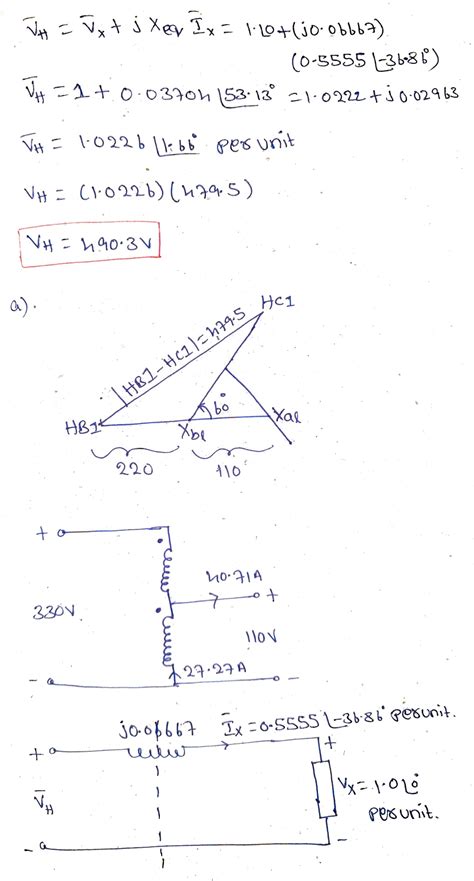 V̄H = V̄x + j Xeq Īx = 1.∠0 + (j0.06667)
(0.5555 ∠-36.86°)
V̄H = 1 + 0.03704 ∠53.13° = 1.0222 + j0.02963
V̄H = 1.0226 ∠1.66° per unit
VH = (1.0226)(479.5)
VH = 490.3V
a).
HC1
|HB1-HC1| = 479.5
60°
HB1
Xb1
Xa1
220
110
+
40.71A
+
330V
110V
27.27A
-
-
j0.06667
Īx = 0.5555 ∠-36.86° per unit.
+
+
V̄H
Vx = 1.0∠0°
per unit.
-
-